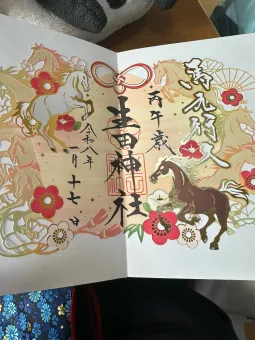 馬九行久
丙午歳
生田神社
令和八年
一月十七日